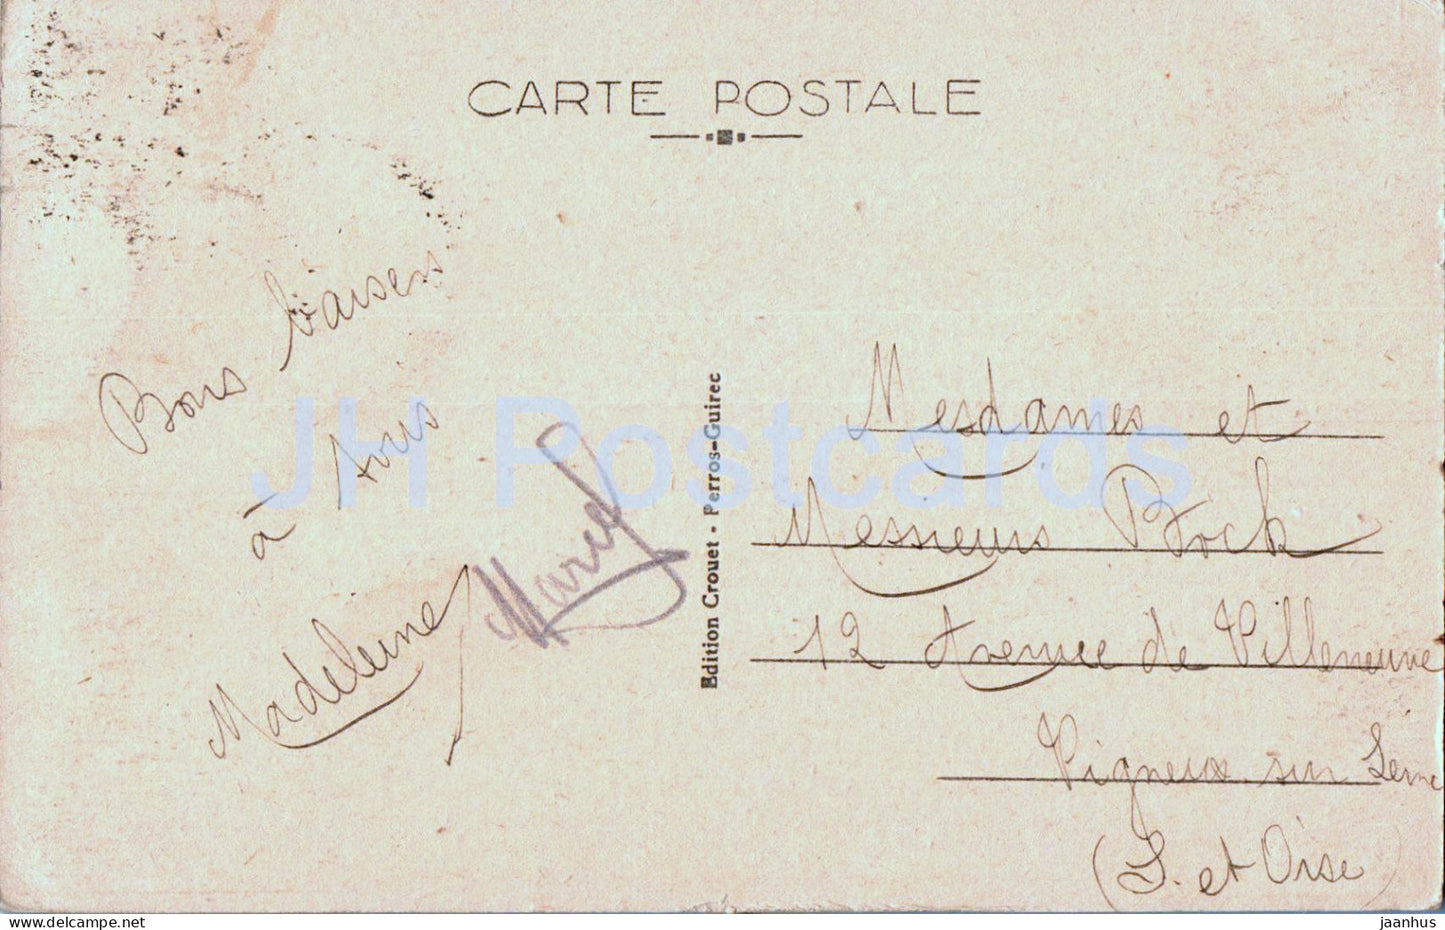 CARTE POSTALE
Bons baisers
à tous
Madeleine
Marcel
Edition Crouet - Perros-Guirec
Mesdames et
Messieurs Bock
12 Avenue de Villeneuve
Vigneux sur Seine
(S. et Oise)
JH Postcards
www.delcampe.net
jaanhus